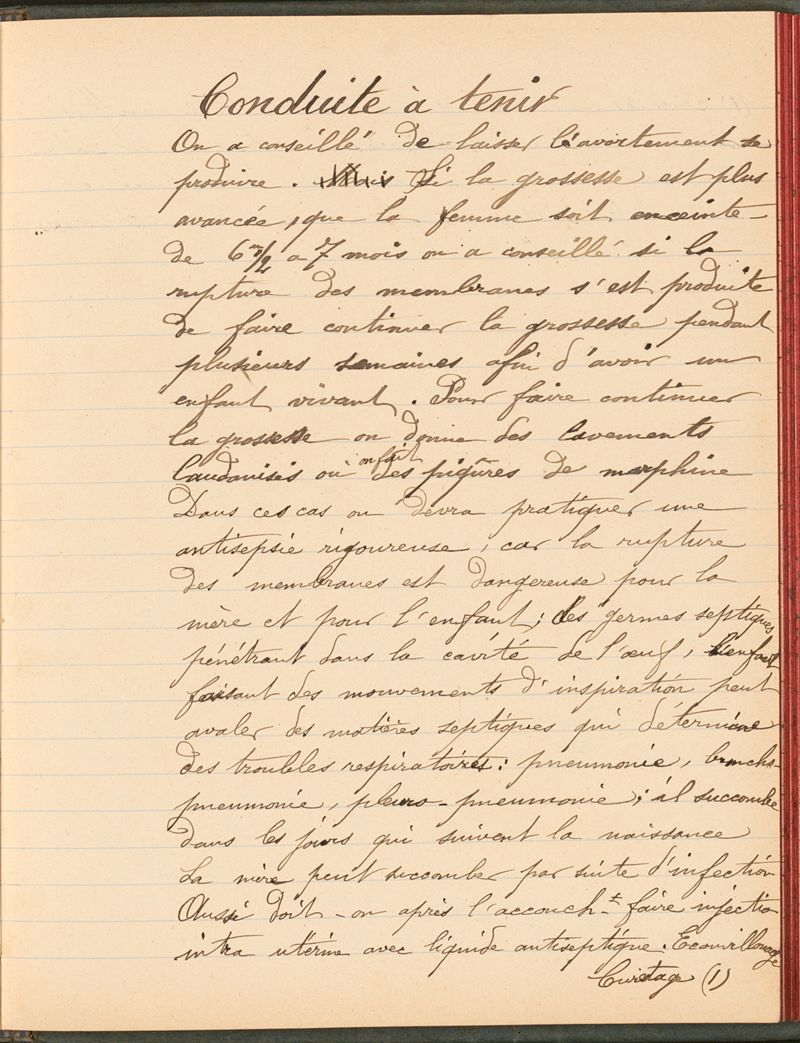 Conduite à tenir
On a conseillé de laisser l'avortement se
produire. Si la grossesse est plus
avancée, que la femme soit enceinte
de 6 m 1/2 a 7 mois on a conseillé si la
rupture des membranes s'est produite
de faire continuer la grossesse pendant
plusieurs semaines afin d'avoir un
enfant vivant. Pour faire continuer
la grossesse on donne des lavements
laudanisés ou on fait des piqûres de morphine
Dans ces cas on devra pratiquer une
antisepsie rigoureuse, car la rupture
des membranes est dangereuse pour la
mère et pour l'enfant; les germes septiques
pénétrant dans la cavité de l'œuf, l'enfant
faisant des mouvements d'inspiration peut
avaler des matières septiques qui détermine
des troubles respiratoires: pneumonie, broncho-
pneumonie, pleuro-pneumonie; il succombe
dans les jours qui suivent la naissance
La mère peut succomber par suite d'infection
Aussi doit-on après l'accouch-t faire injection
intra utérine avec liquide antiseptique. Ecouvillonage
Curetage (1)